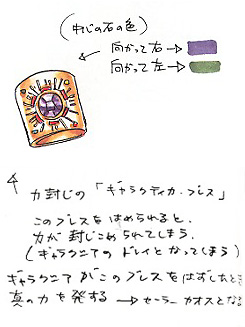 (中心の石の色)
向かって右→
向かって左→
力封じの「ギャラクティカ・ブレス」
このブレスをはめられると、
力が封じこめられてしまう。
(ギャラクシアのドレイとなってしまう)
ギャラクシアがこのブレスをはずしたとき
真の力を発する→セーラーカオスとなる